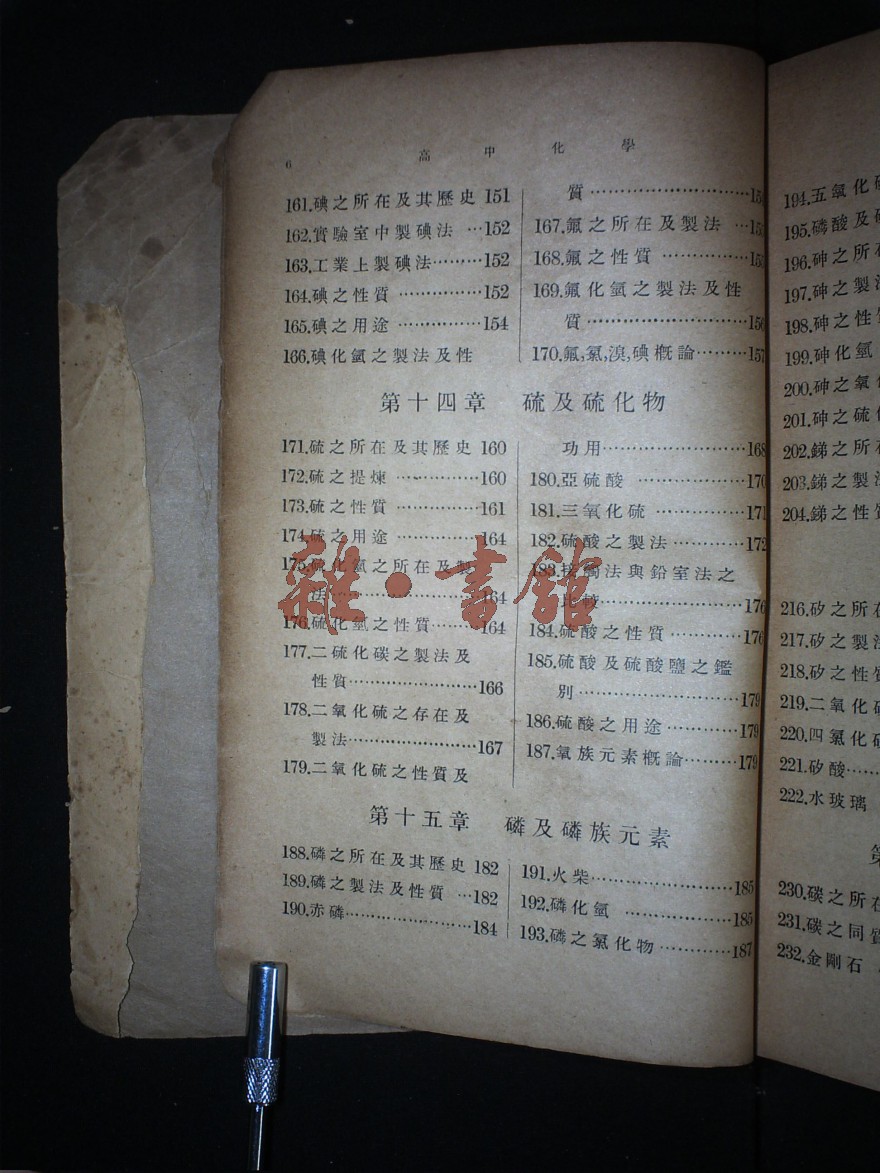 6
高中化學
161.碘之所在及其歷史 151
162.實驗室中製碘法 …152
163.工業上製碘法………152
164.碘之性質 ……………152
165.碘之用途 ……………154
166.碘化氫之製法及性
質…………………………15
167.氟之所在及製法 …15
168.氟之性質 ……………15
169.氟化氫之製法及性
質…………………………156
170.氟,氯,溴,碘概論………157
第十四章 硫及硫化物
171.硫之所在及其歷史 160
172.硫之提煉 ……………160
173.硫之性質 ……………161
174.硫之用途 ……………164
175.硫化氫之所在及製
法…………………………164
176.硫化氫之性質………164
177.二硫化碳之製法及
性質……………………166
178.二氧化硫之存在及
製法……………………167
179.二氧化硫之性質及
功用……………………168
180.亞硫酸 ………………170
181.三氧化硫 ……………171
182.硫酸之製法…………172
183.接觸法與鉛室法之
比較……………………176
184.硫酸之性質…………176
185.硫酸及硫酸鹽之鑑
別…………………………179
186.硫酸之用途…………179
187.氧族元素概論………179
第十五章 磷及磷族元素
188.磷之所在及其歷史 182
189.磷之製法及性質 …182
190.赤磷……………………184
191.火柴……………………185
192.磷化氫 ………………185
193.磷之氯化物…………187
194.五氧化
195.磷酸及
196.砷之所
197.砷之製
198.砷之性
199.砷化氫
200.砷之氧
201.砷之硫
202.銻之所
203.銻之製
204.銻之性
216.矽之所
217.矽之製
218.矽之性
219.二氧化
220.四氯化
221.矽酸……
222.水玻璃
第
230.碳之所
231.碳之同
232.金剛石
雜·書館